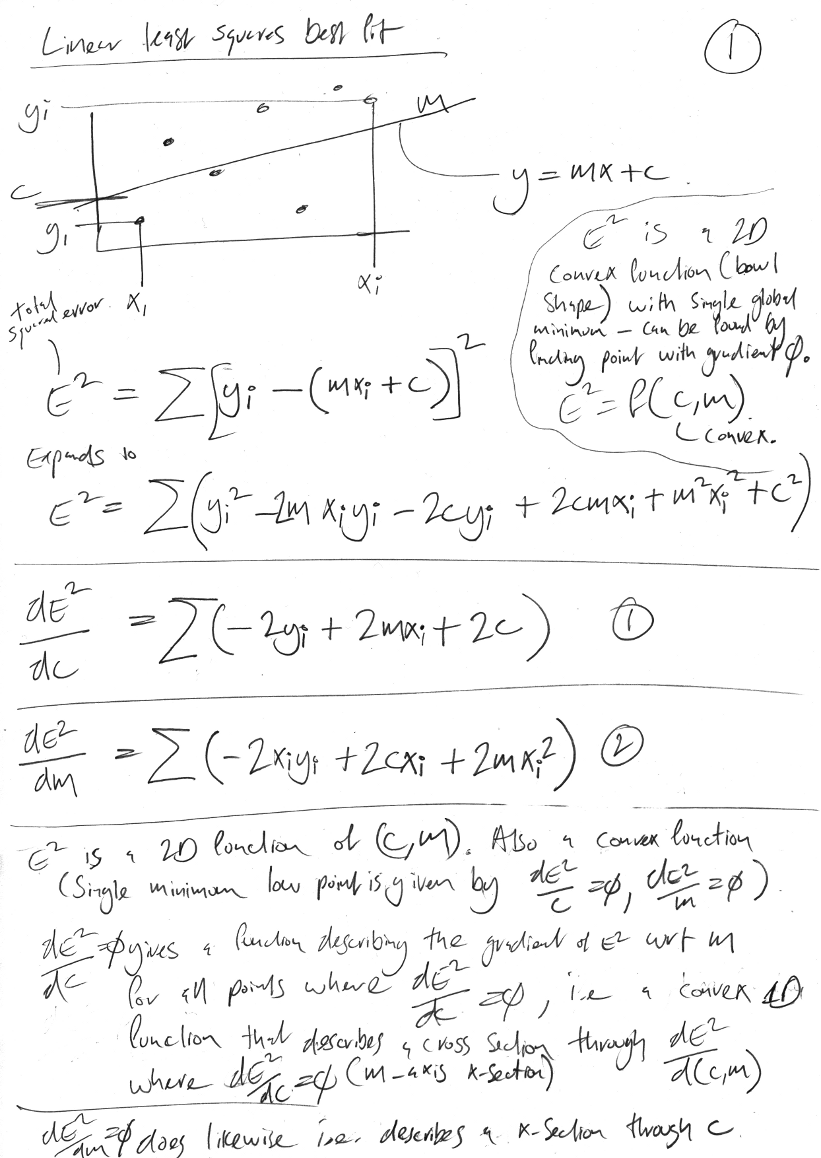 Linear least squares best fit
①
yi
m
c
y = mx + c
y1
x1
xi
E² is a 2D
convex function (bowl
shape) with single global
minimum – can be found by
finding point with gradient φ.
E² = f(c, m)
convex.
total
squared error.
E² = ∑[yi – (mxi + c)]²
Expands to
E² = ∑(yi² – 2m xiyi – 2cyi + 2cmxi + m²xi² + c²)
dE²/dc = ∑(– 2yi + 2mxi + 2c) ①
dE²/dm = ∑(– 2xiyi + 2cxi + 2mxi²) ②
E² is a 2D function of (c, m). Also a convex function
(single minimum low point is given by dE²/c = φ, dE²/m = φ)
dE²/dc = φ gives a function describing the gradient of E² wrt m
for all points where dE²/dc = φ, i.e a convex 1D
function that describes a cross section through dE²/d(c, m)
where dE²/dc = φ (m-axis x-section)
dE²/dm = φ does likewise i.e. describes a x-section through c.